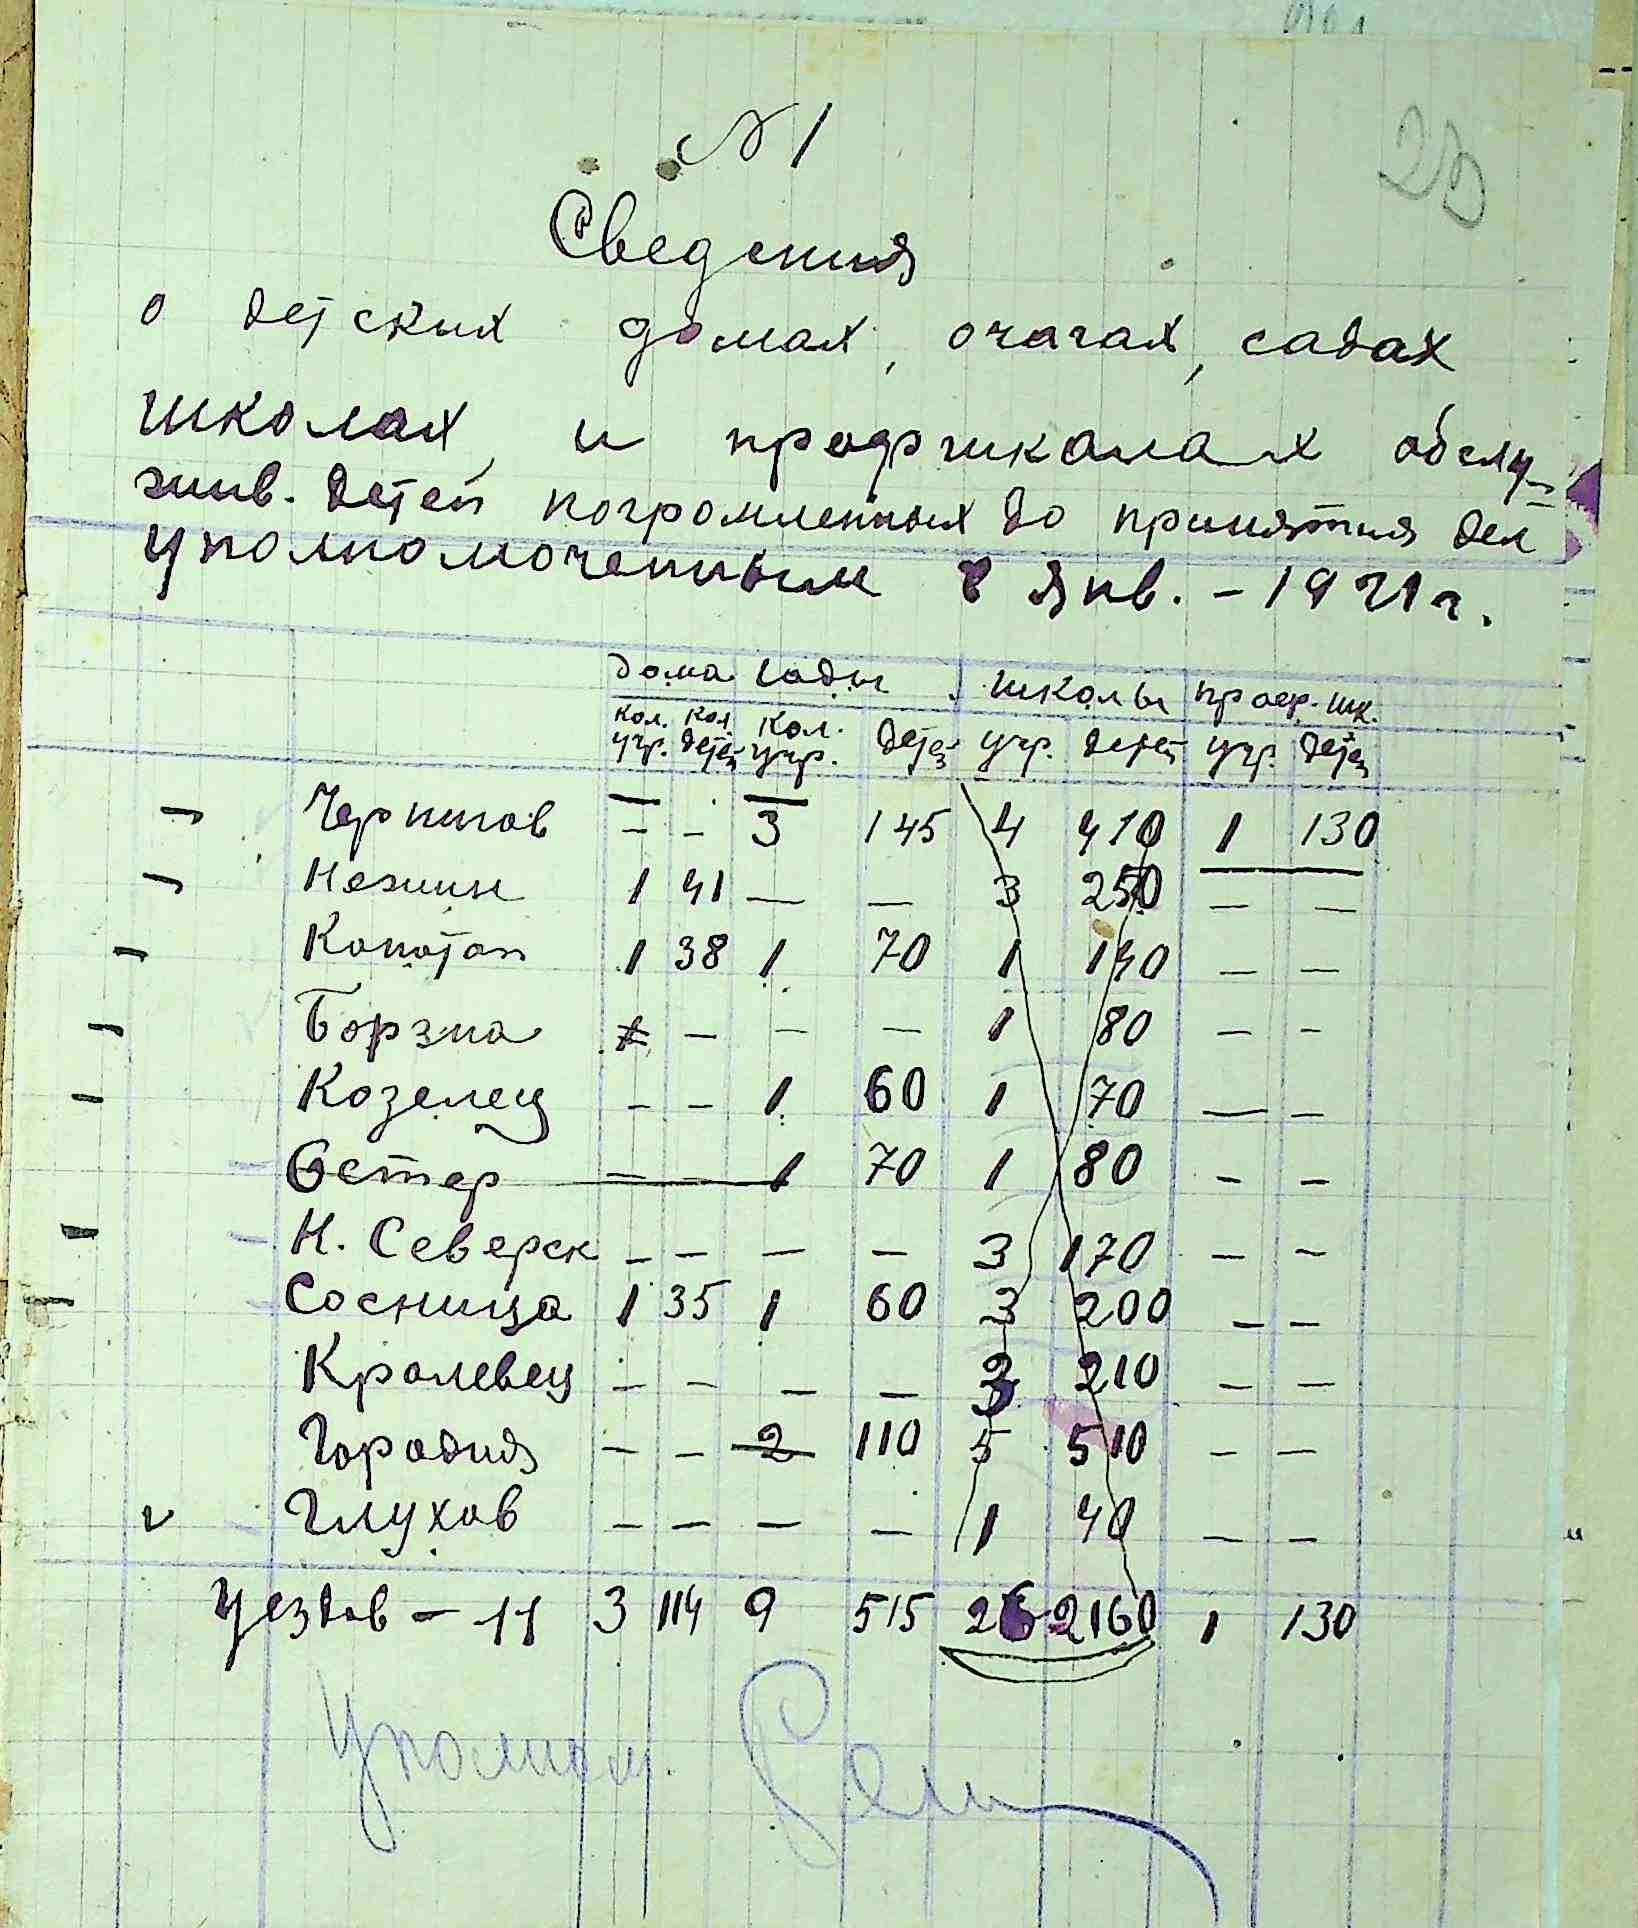 № 1
Сведения
о детских домах, очагах, садах
школах, и профшколах обслу-
жив. детей погромленных до принятия дел
уполномоченным 8 янв. - 1921 г.
Дома Сады Школы проф. шк.
кол. учр. кол. детей кол. учр. детей учр. детей учр. детей
Чернигов - - 3 145 4 410 1 130
Нежин 1 41 — — 3 250 — —
Конотоп 1 38 1 70 1 140 — —
Борзна - - - 1 80 - -
Козелец - - 1 60 1 70 — -
Остер - - 1 70 1 80 - -
Н. Северск - - - - 3 170 - -
Сосница 1 35 1 60 3 200 - -
Кролевец - - - - 3 210 - -
Городня - - 2 110 5 510 - -
Глухов - - - - 1 40 - -
Уездов - 11 3 114 9 515 26 2160 1 130
Уполном.